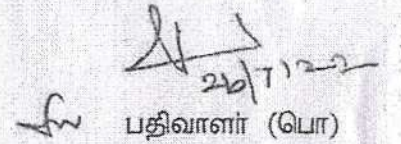 26/7/22
பதிவாளர் (பொ)